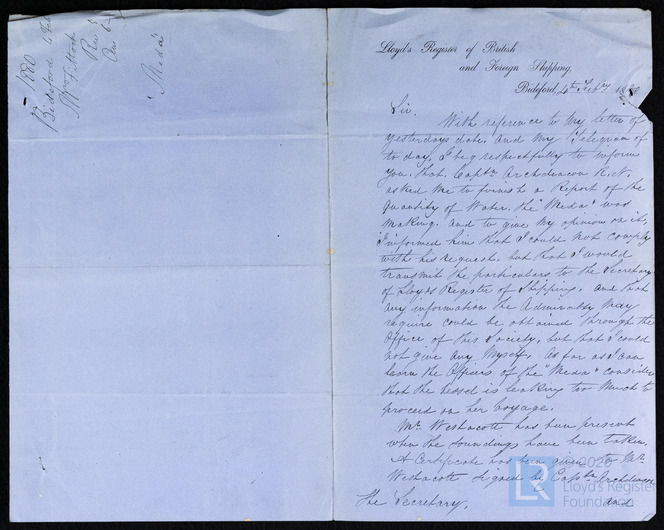 1880
Bideford 5 Feb
Mr Fittock
Rec 5
An 6
"Meda"
Lloyd's Register of British
and Foreign Shipping.
Bideford, 4th Feby 1880
Sir.
With reference to My letter of
yesterdays date. and My Telegram of
to day, I beg respectfully to inform
you. that Captn Archdeacon R.N.
asked me to furnish a Report of the
quantity of Water. the "Meda" was
Making. and to give My opinion on it,
I informed him that I could not comply
with his request. but that I would
transmit the particulars to the Secretary
of Lloyds Register of Shipping. and that
any information the Admiralty May
require could be obtained through the
Office of this Society, but that I could
not give any Myself. As far as I can
learn the Officers of the "Meda" consider
that the vessel is leaking too Much to
proceed on her voyage.
Mr. Westacott has been present
when the soundings have been taken.
A Certificate has been given to Mr.
Westacott signed by Captn Archdeacon
The Secretary.
and
© 2020
LR
Lloyd's Register
Foundation